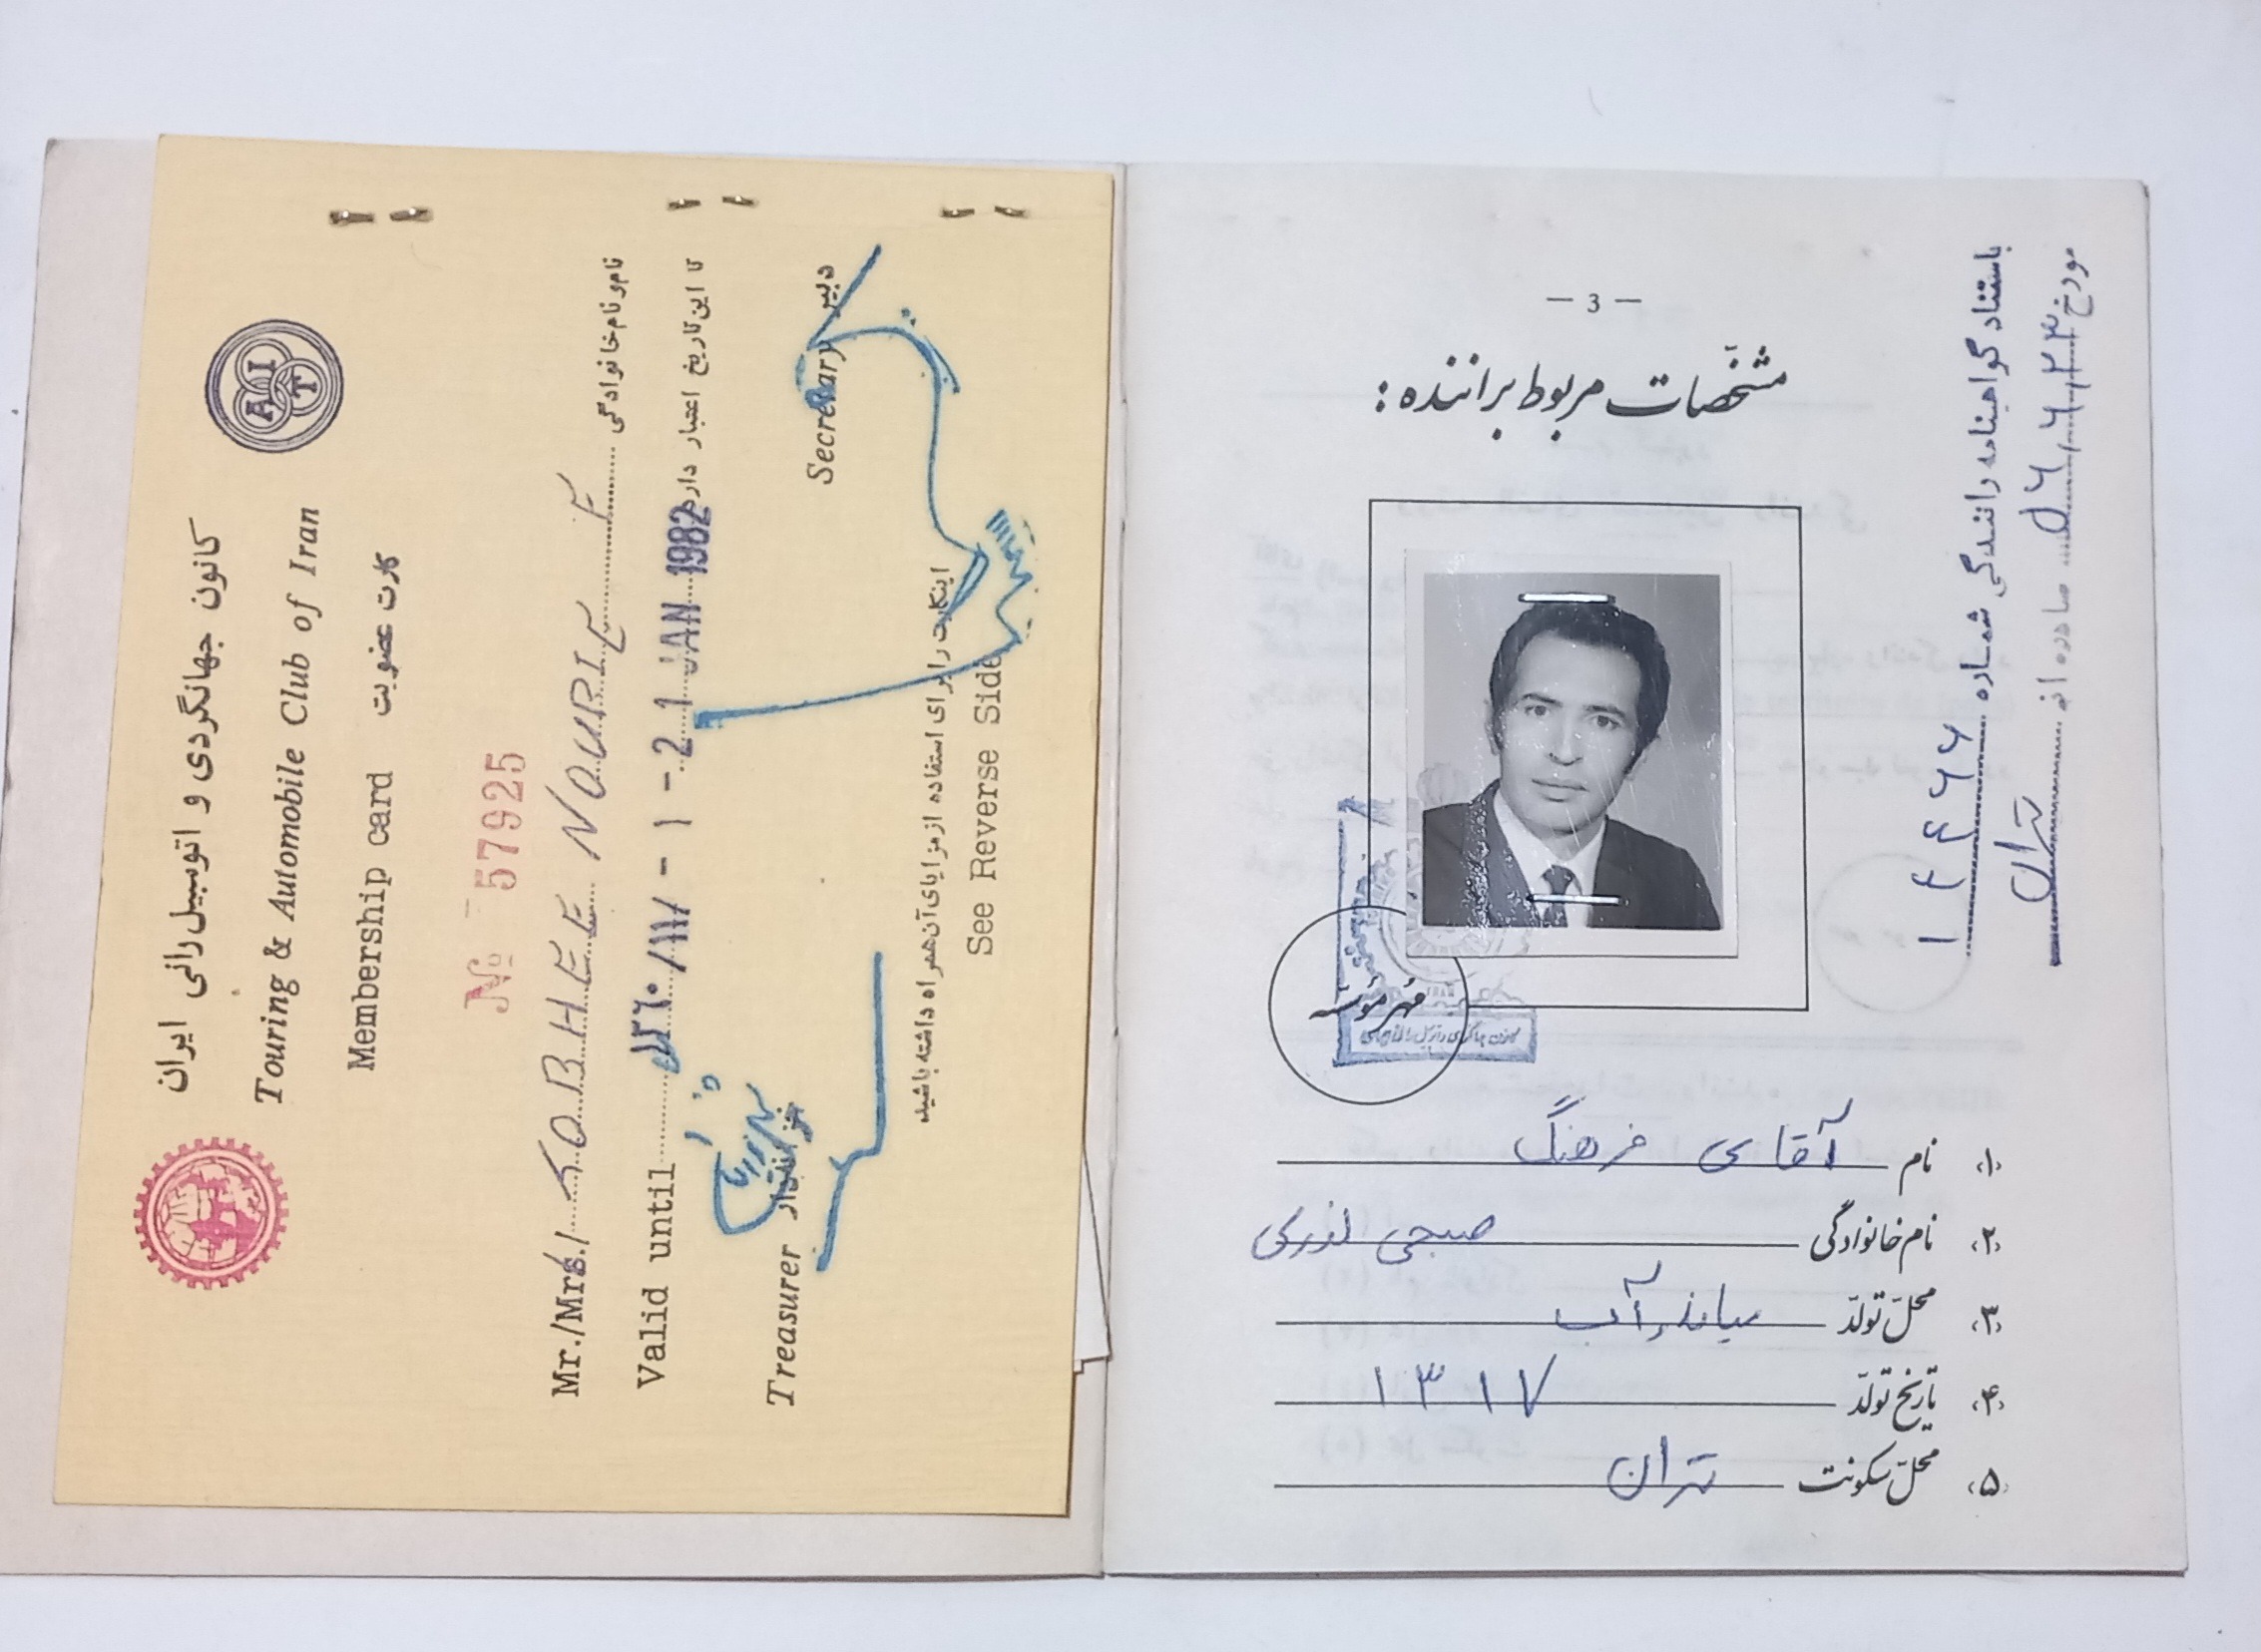 کانون جهانگردی و اتومبیل‌رانی ایران
Touring & Automobile Club of Iran
AIT
Membership card کارت عضویت
№ 57925
Mr./Mrs./ SOBHEE NOURIE F نام و نام خانوادگی
Valid until ۱۳۶۰/۱۱/۱ - 21 JAN 1982 تا این تاریخ اعتبار دارد
Treasurer خزانه‌دار Secretary دبیر
اینکارت را برای استفاده از مزایای آن همراه داشته باشید
See Reverse Side
— 3 —
مشخصات مربوط براننده :
مهر مؤسسه
(۱) نام آقای فرهنگ
(۲) نام خانوادگی صبحی نوری
(۳) محل تولد میاندوآب
(۴) تاریخ تولد ۱۳۱۷
(۵) محل سکونت تهران
باستناد گواهینامه رانندگی شماره ۱۴۴۶۶
مورخ ۵۶,۶,۲۳ صادره از تهران